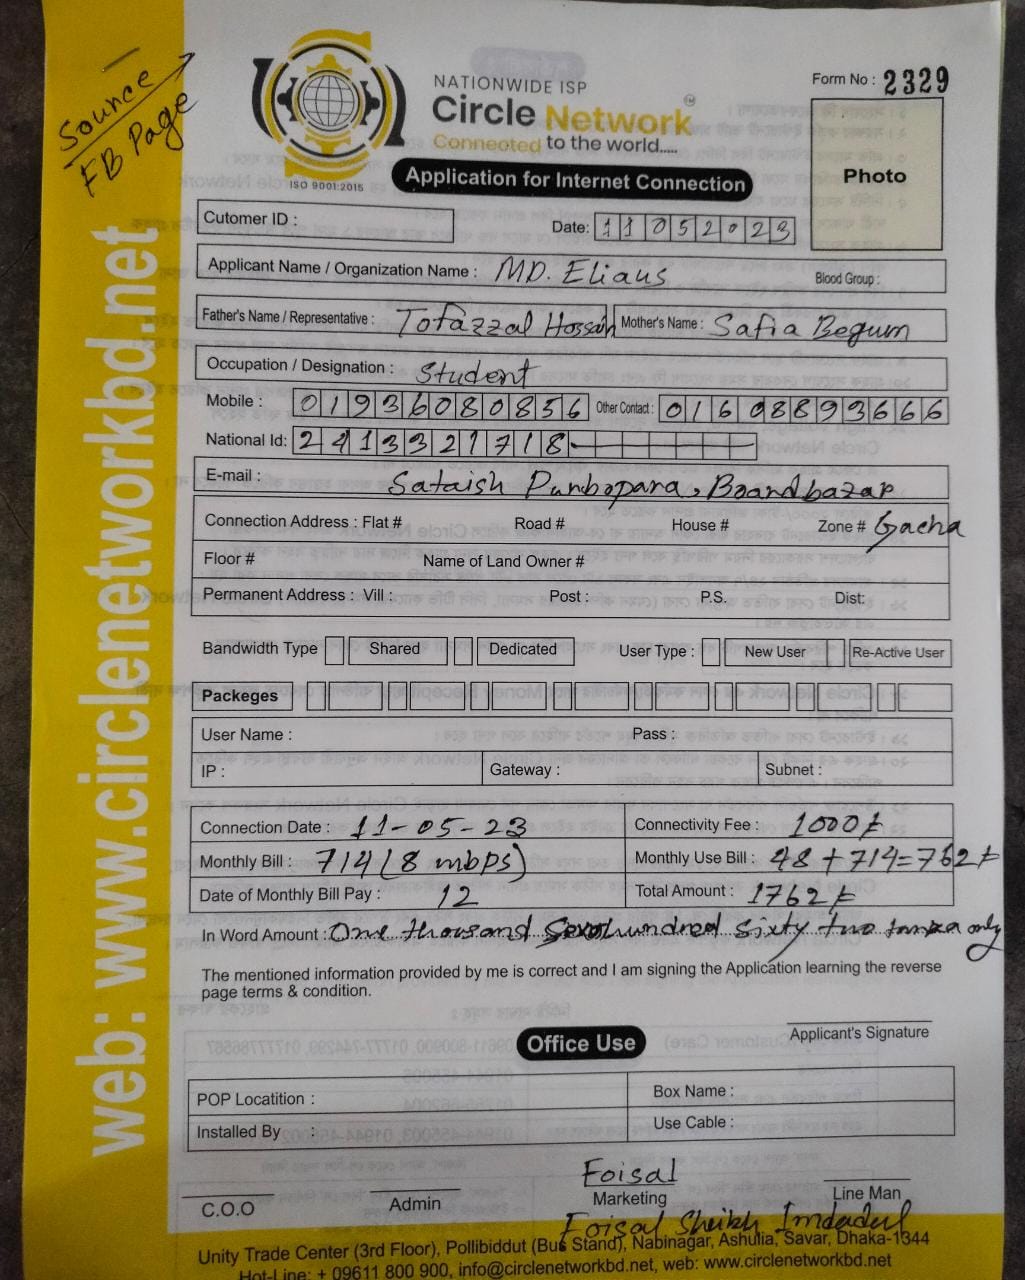 Source
FB Page
NATIONWIDE ISP
Circle Network
Connected to the world.....
ISO 9001:2015
Form No : 2329
Photo
Application for Internet Connection
Cutomer ID :
Date: 11052023
Applicant Name / Organization Name : MD. Eliaus
Blood Group :
Father's Name / Representative : Tofazzal Hossain
Mother's Name : Safia Begum
Occupation / Designation : Student
Mobile : 01936080856
Other Contact : 01608893666
National Id: 2413321718
E-mail : Sataish Purbopara, Boardbazar
Connection Address : Flat # Road # House # Zone # Gacha
Floor # Name of Land Owner #
Permanent Address : Vill : Post : P.S. Dist:
Bandwidth Type Shared Dedicated User Type : New User Re-Active User
Packeges
User Name : Pass :
IP : Gateway : Subnet :
Connection Date : 11-05-23
Connectivity Fee : 1000/-
Monthly Bill : 714 (8 mbps)
Monthly Use Bill : 48+714=762/-
Date of Monthly Bill Pay : 12
Total Amount : 1762/-
In Word Amount : One thousand hundred sixty two only
The mentioned information provided by me is correct and I am signing the Application learning the reverse
page terms & condition.
Applicant's Signature
Office Use
POP Locatition :
Box Name :
Installed By :
Use Cable :
Foisal
C.O.O Admin Marketing Line Man
Foisal Sheikh Imdadul
Unity Trade Center (3rd Floor), Pollibiddut (Bus Stand), Nabinagar, Ashulia, Savar, Dhaka-1344
Hot-Line: + 09611 800 900, info@circlenetworkbd.net, web: www.circlenetworkbd.net
web: www.circlenetworkbd.net